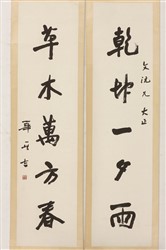 乾坤一夕雨
草木萬方春